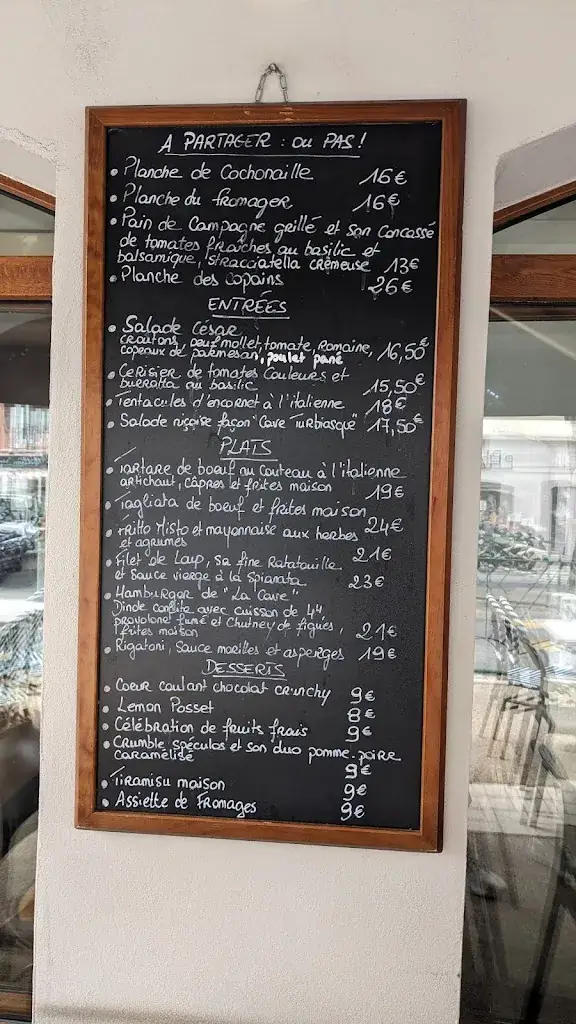 A PARTAGER : ou PAS !
• Planche de Cochonaille 16€
• Planche du fromager 16€
• Pain de Campagne grillé et son Concassé
de tomates fraîches au basilic et
balsamique, stracciatella crémeuse 13€
• Planche des copains 26€
ENTRÉES
• Salade César
croutons, oeuf mollet, tomate, Romaine, 16,50€
copeaux de parmesan, poulet pané
• Cerisier de tomates Couleurs et
burratta au basilic 15,50€
• Tentacules d'encornet à l'italienne 18€
• Salade niçoise façon "Cave Turbiasque" 17,50€
PLATS
• Tartare de boeuf au Couteau à l'italienne
artichaut, câpres et frites maison 19€
• Tagliata de boeuf et frites maison 24€
• Fritto Misto et mayonnaise aux herbes
et agrumes 21€
• Filet de Loup, sa fine Ratatouille
et Sauce vierge à la Spianata 23€
• Hamburger de "La Cave"
Dinde confite avec cuisson de 4H
provolone fumé et Chutney de figues,
frites maison 21€
• Rigatoni, Sauce morilles et asperges 19€
DESSERTS
• Coeur coulant chocolat crunchy 9€
• Lemon Posset 8€
• Célébration de fruits frais 9€
• Crumble spéculos et son duo pomme-poire
caramélisé 9€
• Tiramisu maison 9€
• Assiette de Fromages 9€